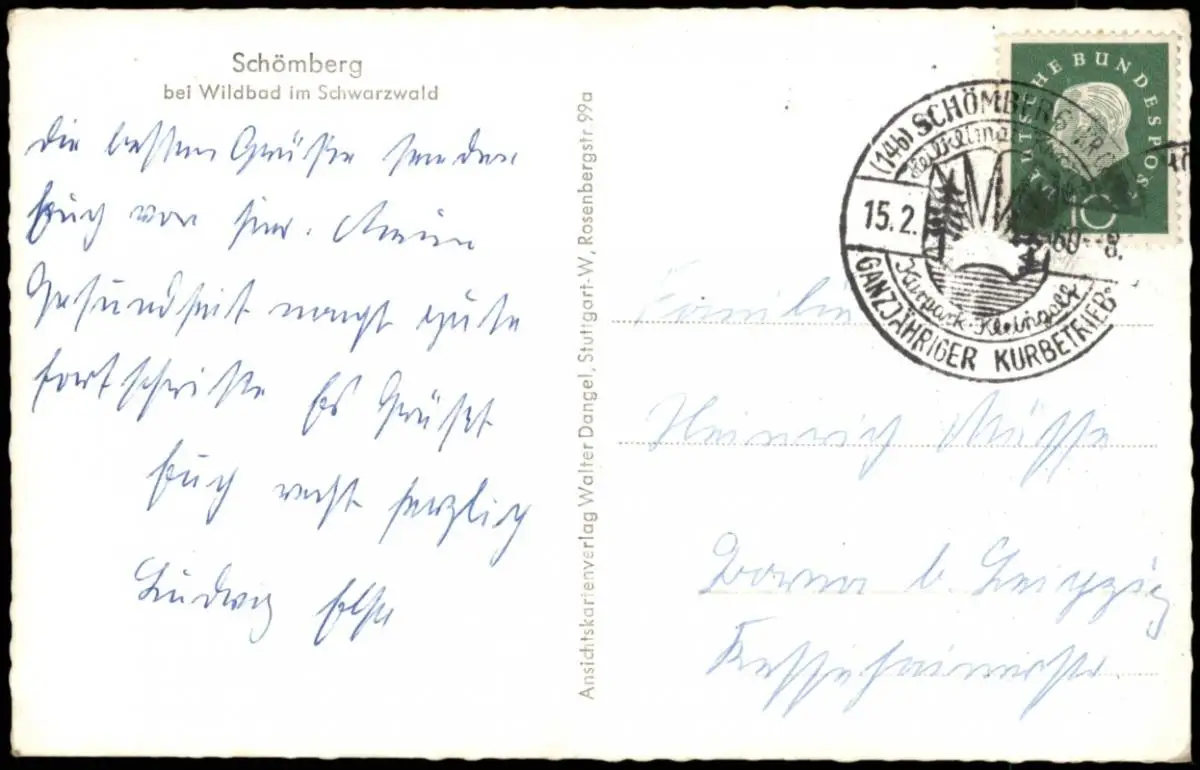 Schömberg
bei Wildbad im Schwarzwald
die besten Grüße senden
Euch von hier. Meine
Gesundheit macht gute
fortschritte Es Grüßt
Euch recht herzlich
Ludwig Else
Ansichtskartenverlag Walter Dangel, Stuttgart-W, Rosenbergstr 99a
DEUTSCHE BUNDESPOST
10
(14b) SCHÖMBERG
15.2.
60--8.
Kurpark-Kleingolf
GANZJÄHRIGER KURBETRIEB
Familie
Heinrich
Borna b. Leipzig